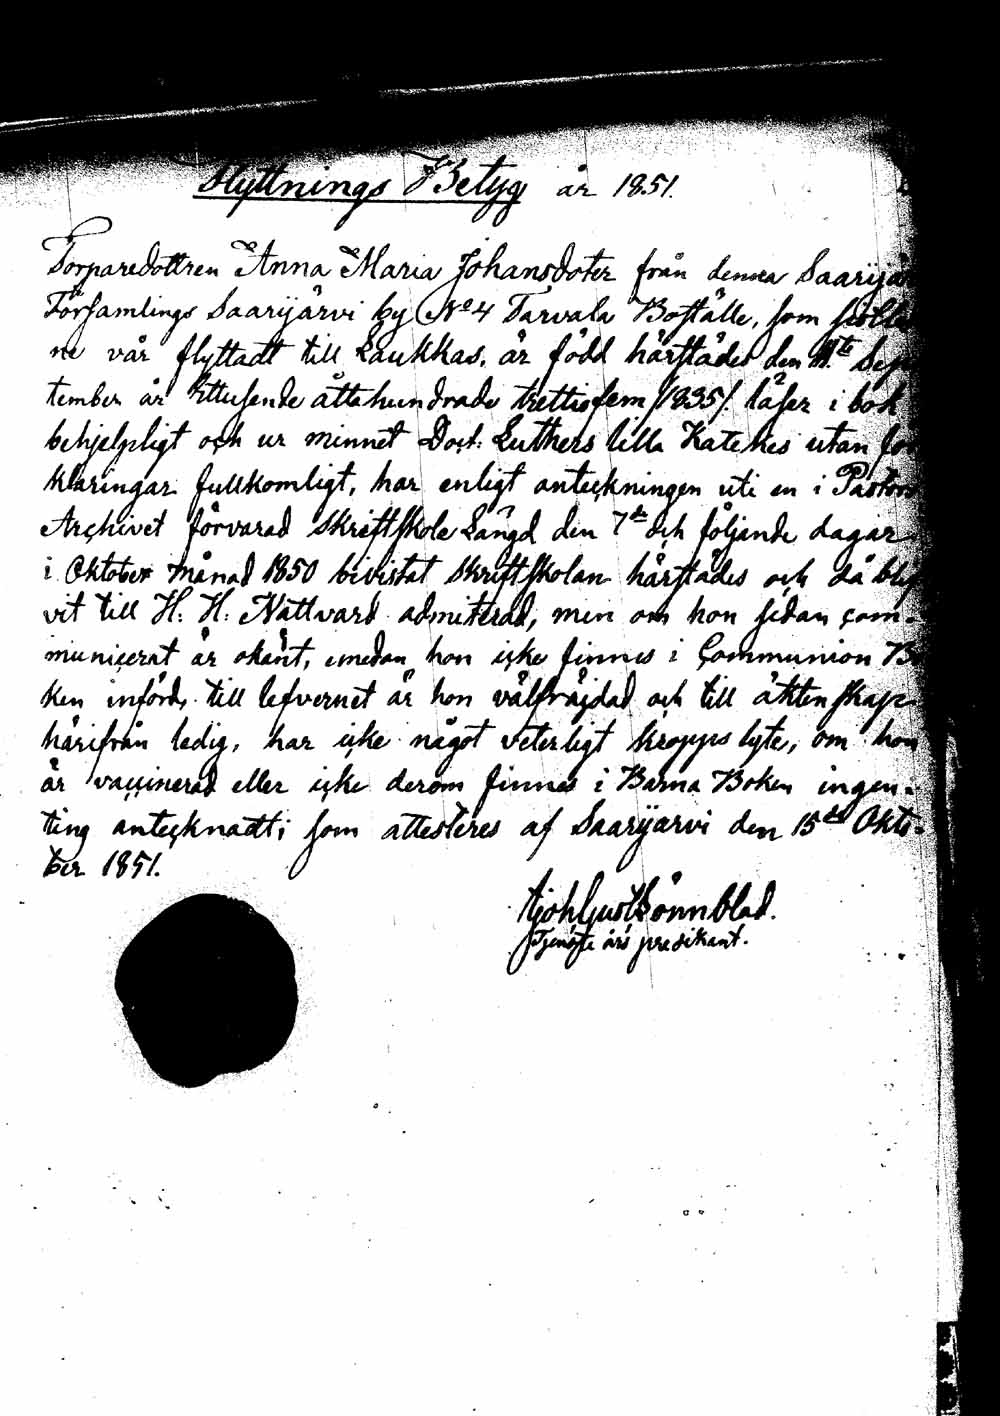 Flyttnings Betyg år 1851.
Torparedottren Anna Maria Johansdoter från denna Saarijär
Församlings Saarijärvi by No 4 Tarvala Boställe, som sistl
ne vår flyttadt till Laukkas, är född härstädes den Sep
tember år Ettusende åttahundrade trettiofem /1835/. läser i bok
behjelpligt och ur minnet Doct: Luthers lilla Kateches utan för
klaringar fullkomligt, har enligt anteckningen uti en i Pastors
Archivet förvarad Skriftskole Längd den 7de och följande dagar
i Oktober månad 1850 bevistat Skriftskolan härstädes och då blif
vit till H. H. Nattvard admiterad, men om hon sedan com-
municerat är okänt, emedan hon icke finnes i Communion Bo
ken införd, till lefvernet är hon välfräjdad och till äktenskap
härifrån ledig, har icke något veterligt kropps lyte, om hon
är vaccinerad eller icke derom finnes i Barna Boken ingen-
ting antecknadt; som attesteres af Saarijärvi den 15de Okto-
ber 1851.
Joh Gust Lönnblad.
Tjenste års predikant.